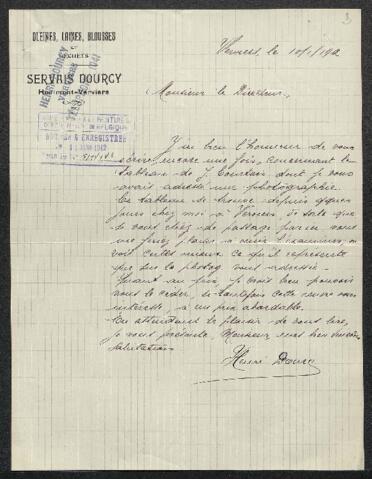 3
OLEINES, LAINES, BLOUSSES
DÉCHETS
SERVAIS DOURCY
Hodimont-Verviers
HENRI DOURCY
Verviers, le 10/1/1942
Monsieur le Directeur,
J'ai bien l'honneur de vous
écrire encore une fois, concernant le
tableau de J. dont je vous
avais adressé une photographie.
Ce tableau se trouve depuis qques
jours chez moi à Verviers, de sorte que
si vous étiez de passage par ici vous
me feriez plaisir à venir l'examiner, on
voit certes mieux ce qu'il représente
que sur la photog. vous adressée.
Quant au prix, je crois bien pouvoir
vous le céder, si toutefois cette œuvre vous
intéresse, à un prix abordable.
En attendant le plaisir de vous lire,
je vous présente, Monsieur, mes bien sincères
salutations
Henri Dourcy